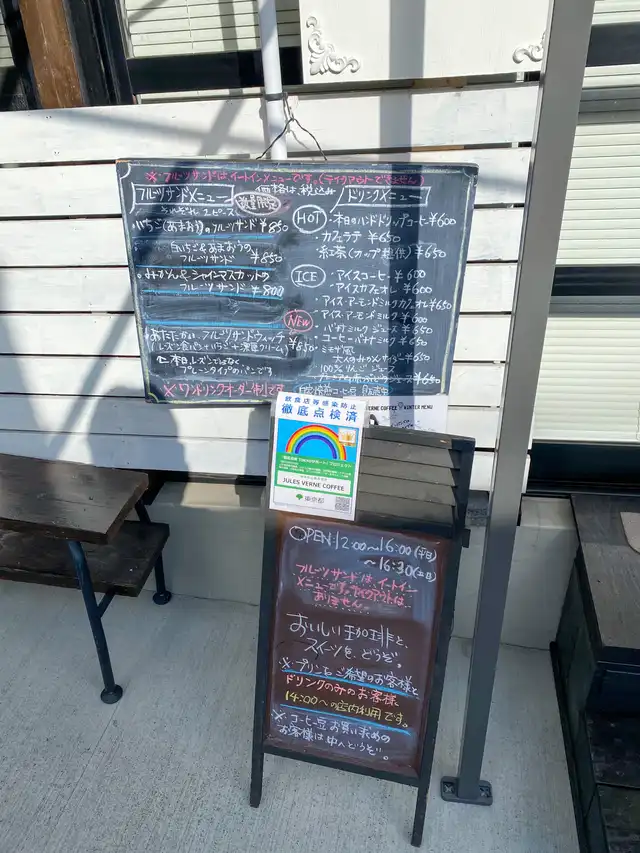 ※フルーツサンドは、イートインメニューです。(テイクアウトできません)
価格は、税込み
フルーツサンドメニュー
数量限定
いちご(あまおう)のフルーツサンド ¥850
フルーツサンド ¥850
・みかんとシャインマスカットの
フルーツサンド ¥800
あたたかい、フルーツサンドウィッチ
プレーンタイプのパンです
※ワンドリンクオーダー制です
ドリンクメニュー
HOT
・本日のハンドドリップコーヒー ¥600
・カフェラテ ¥650
・紅茶(カップ提供) ¥650
ICE
・アイスコーヒー ¥600
・アイスカフェオレ ¥600
・アイス・アーモンドミルクカフェオレ ¥650
・アイス・アーモンドミルク ¥600
NEW
・バナナミルクジュース ¥650
・コーヒーバナナミルク ¥650
100%りんごジュース
VERNE COFFEE WINTER MENU
飲食店等感染防止
徹底点検済
JULES VERNE COFFEE
東京都
OPEN 12:00〜16:00(平日)
〜16:30(土日)
フルーツサンドは、イートイン
メニューです。テイクアウトは
ありません。
おいしい珈琲と、
スイーツを、どうぞ。
※プリンをご希望のお客様と
ドリンクのみのお客様、
14:00〜の店内利用です。
※コーヒー豆お買い求めの
お客様は中へどうぞ。